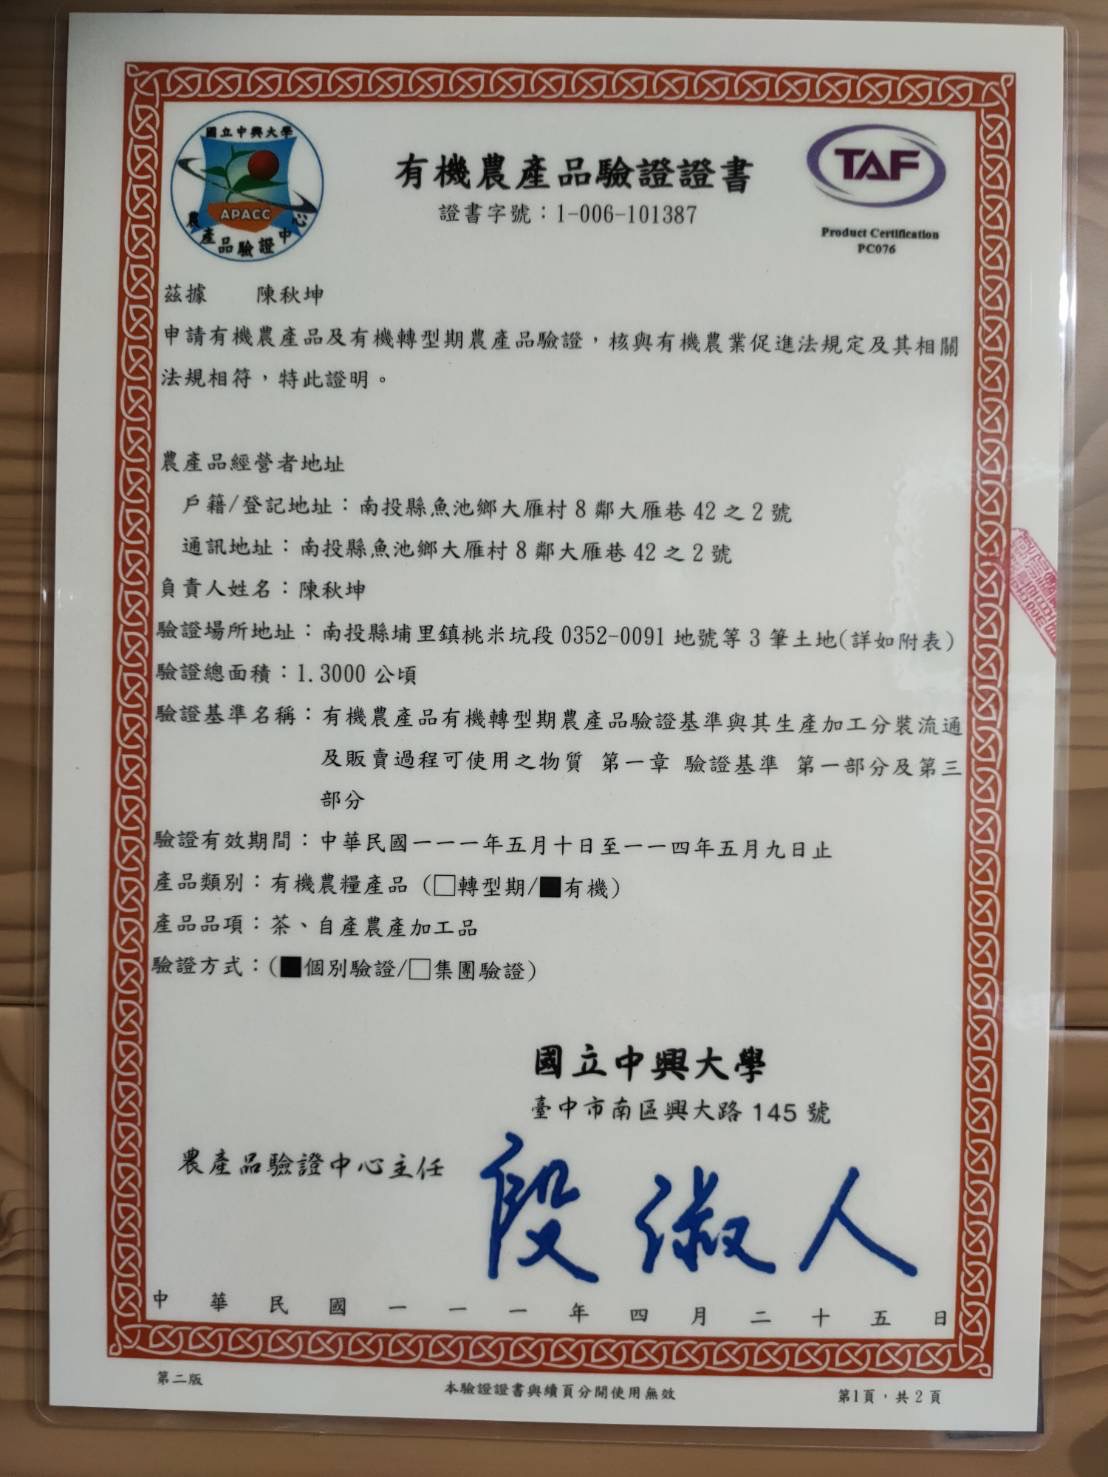 國立中興大學
APACC
農產品驗證中心
有機農產品驗證證書
證書字號：1-006-101387
TAF
Product Certification
PC076
茲據 陳秋坤
申請有機農產品及有機轉型期農產品驗證，核與有機農業促進法規定及其相關
法規相符，特此證明。
農產品經營者地址
戶籍/登記地址：南投縣魚池鄉大雁村8鄰大雁巷42之2號
通訊地址：南投縣魚池鄉大雁村8鄰大雁巷42之2號
負責人姓名：陳秋坤
驗證場所地址：南投縣埔里鎮桃米坑段0352-0091地號等3筆土地(詳如附表)
驗證總面積：1.3000公頃
驗證基準名稱：有機農產品有機轉型期農產品驗證基準與其生產加工分裝流通
及販賣過程可使用之物質 第一章 驗證基準 第一部分及第三
部分
驗證有效期間：中華民國一一一年五月十日至一一四年五月九日止
產品類別：有機農糧產品（□轉型期/■有機）
產品品項：茶、自產農產加工品
驗證方式：(■個別驗證/□集團驗證)
國立中興大學
臺中市南區興大路145號
農產品驗證中心主任 段淑人
中華民國一一一年四月二十五日
第二版
本驗證證書與續頁分開使用無效
第1頁，共2頁